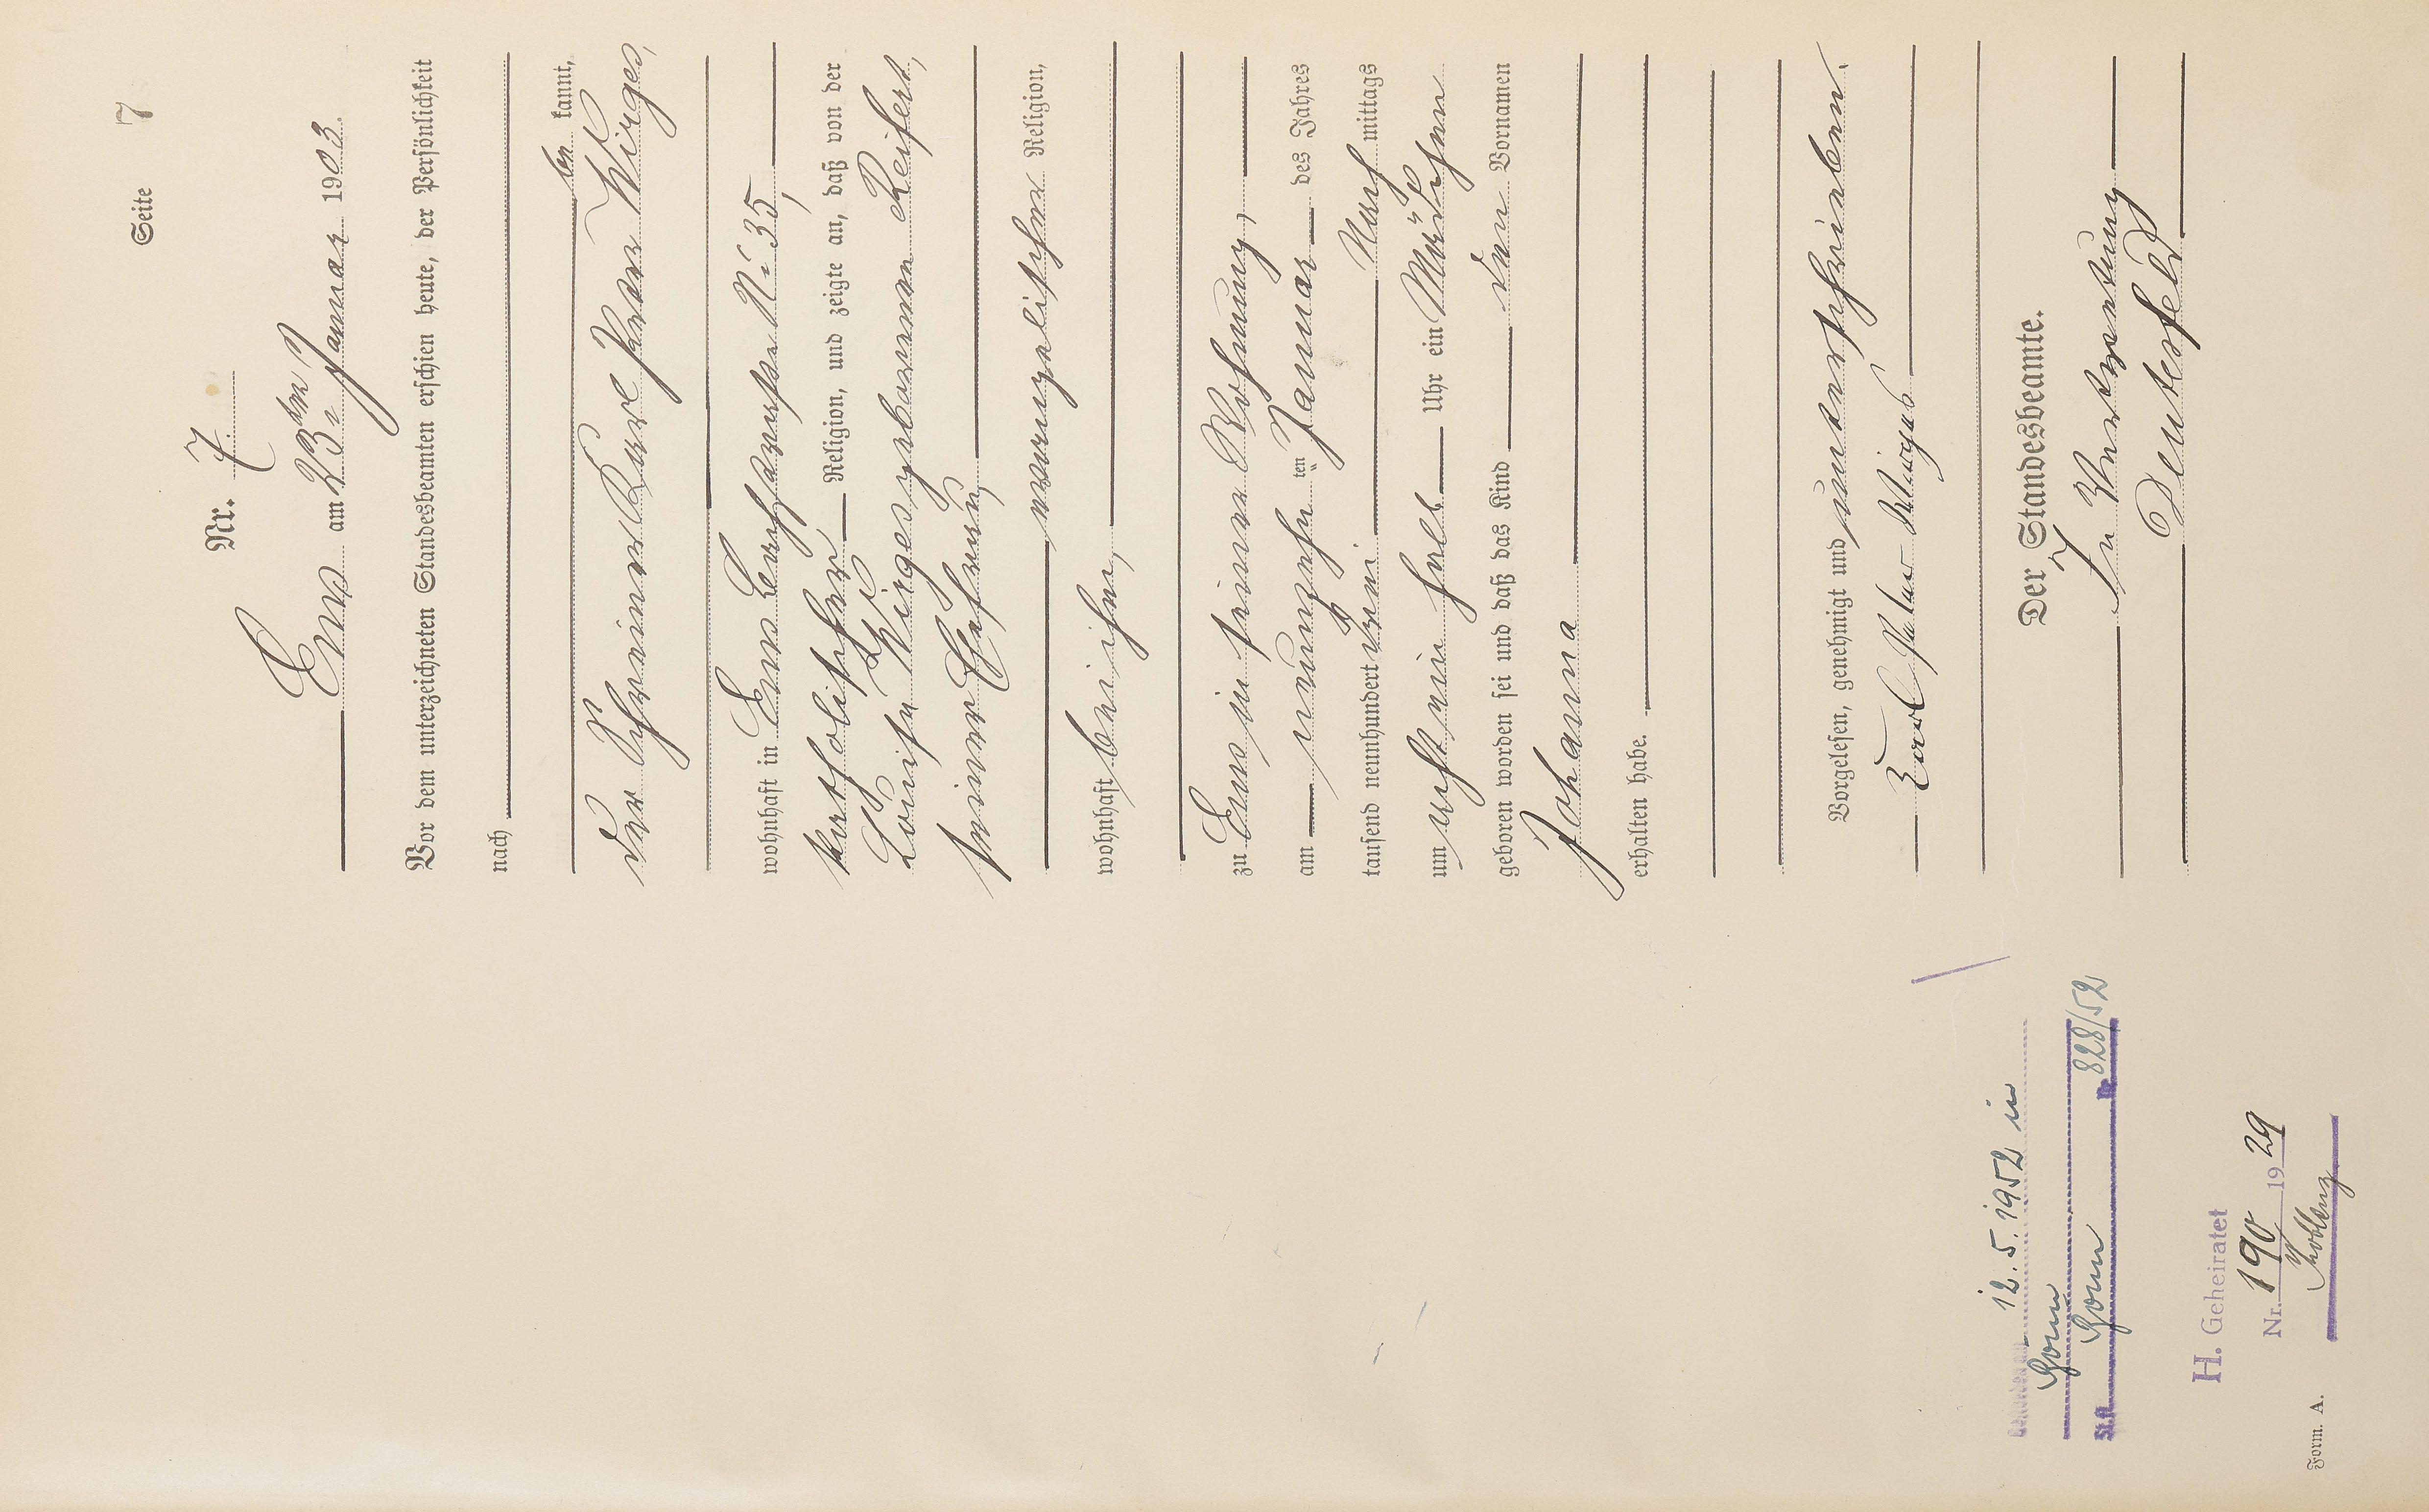 Seite 7
Nr. 7.
Ems am 23ten Januar 1903.
Vor dem unterzeichneten Standesbeamten erschien heute, der Persönlichkeit
nach
be kannt,
der Schreiner Karl Peter Wirges,
wohnhaft in Ems Bachstraße No 35,
katholischer Religion, und zeigte an, daß von der
Louise Wirges geborenen Reifert,
seiner Ehefrau,
evangelischer Religion,
wohnhaft bei ihm,
zu Ems in seiner Wohnung,
am neunzehn ten Januar des Jahres
tausend neunhundert drei Nach mittags
um acht ein halb Uhr ein Mädchen
geboren worden sei und daß das Kind den Vornamen
Johanna
erhalten habe.
Vorgelesen, genehmigt und unterschrieben.
Karl Peter Wirges
Der Standesbeamte.
In Vertretung
12. 5. 1952 in
Bonn
St.A. Bonn Nr. 828/52
H. Geheiratet
Nr. 190 1929
Koblenz
Form. A.